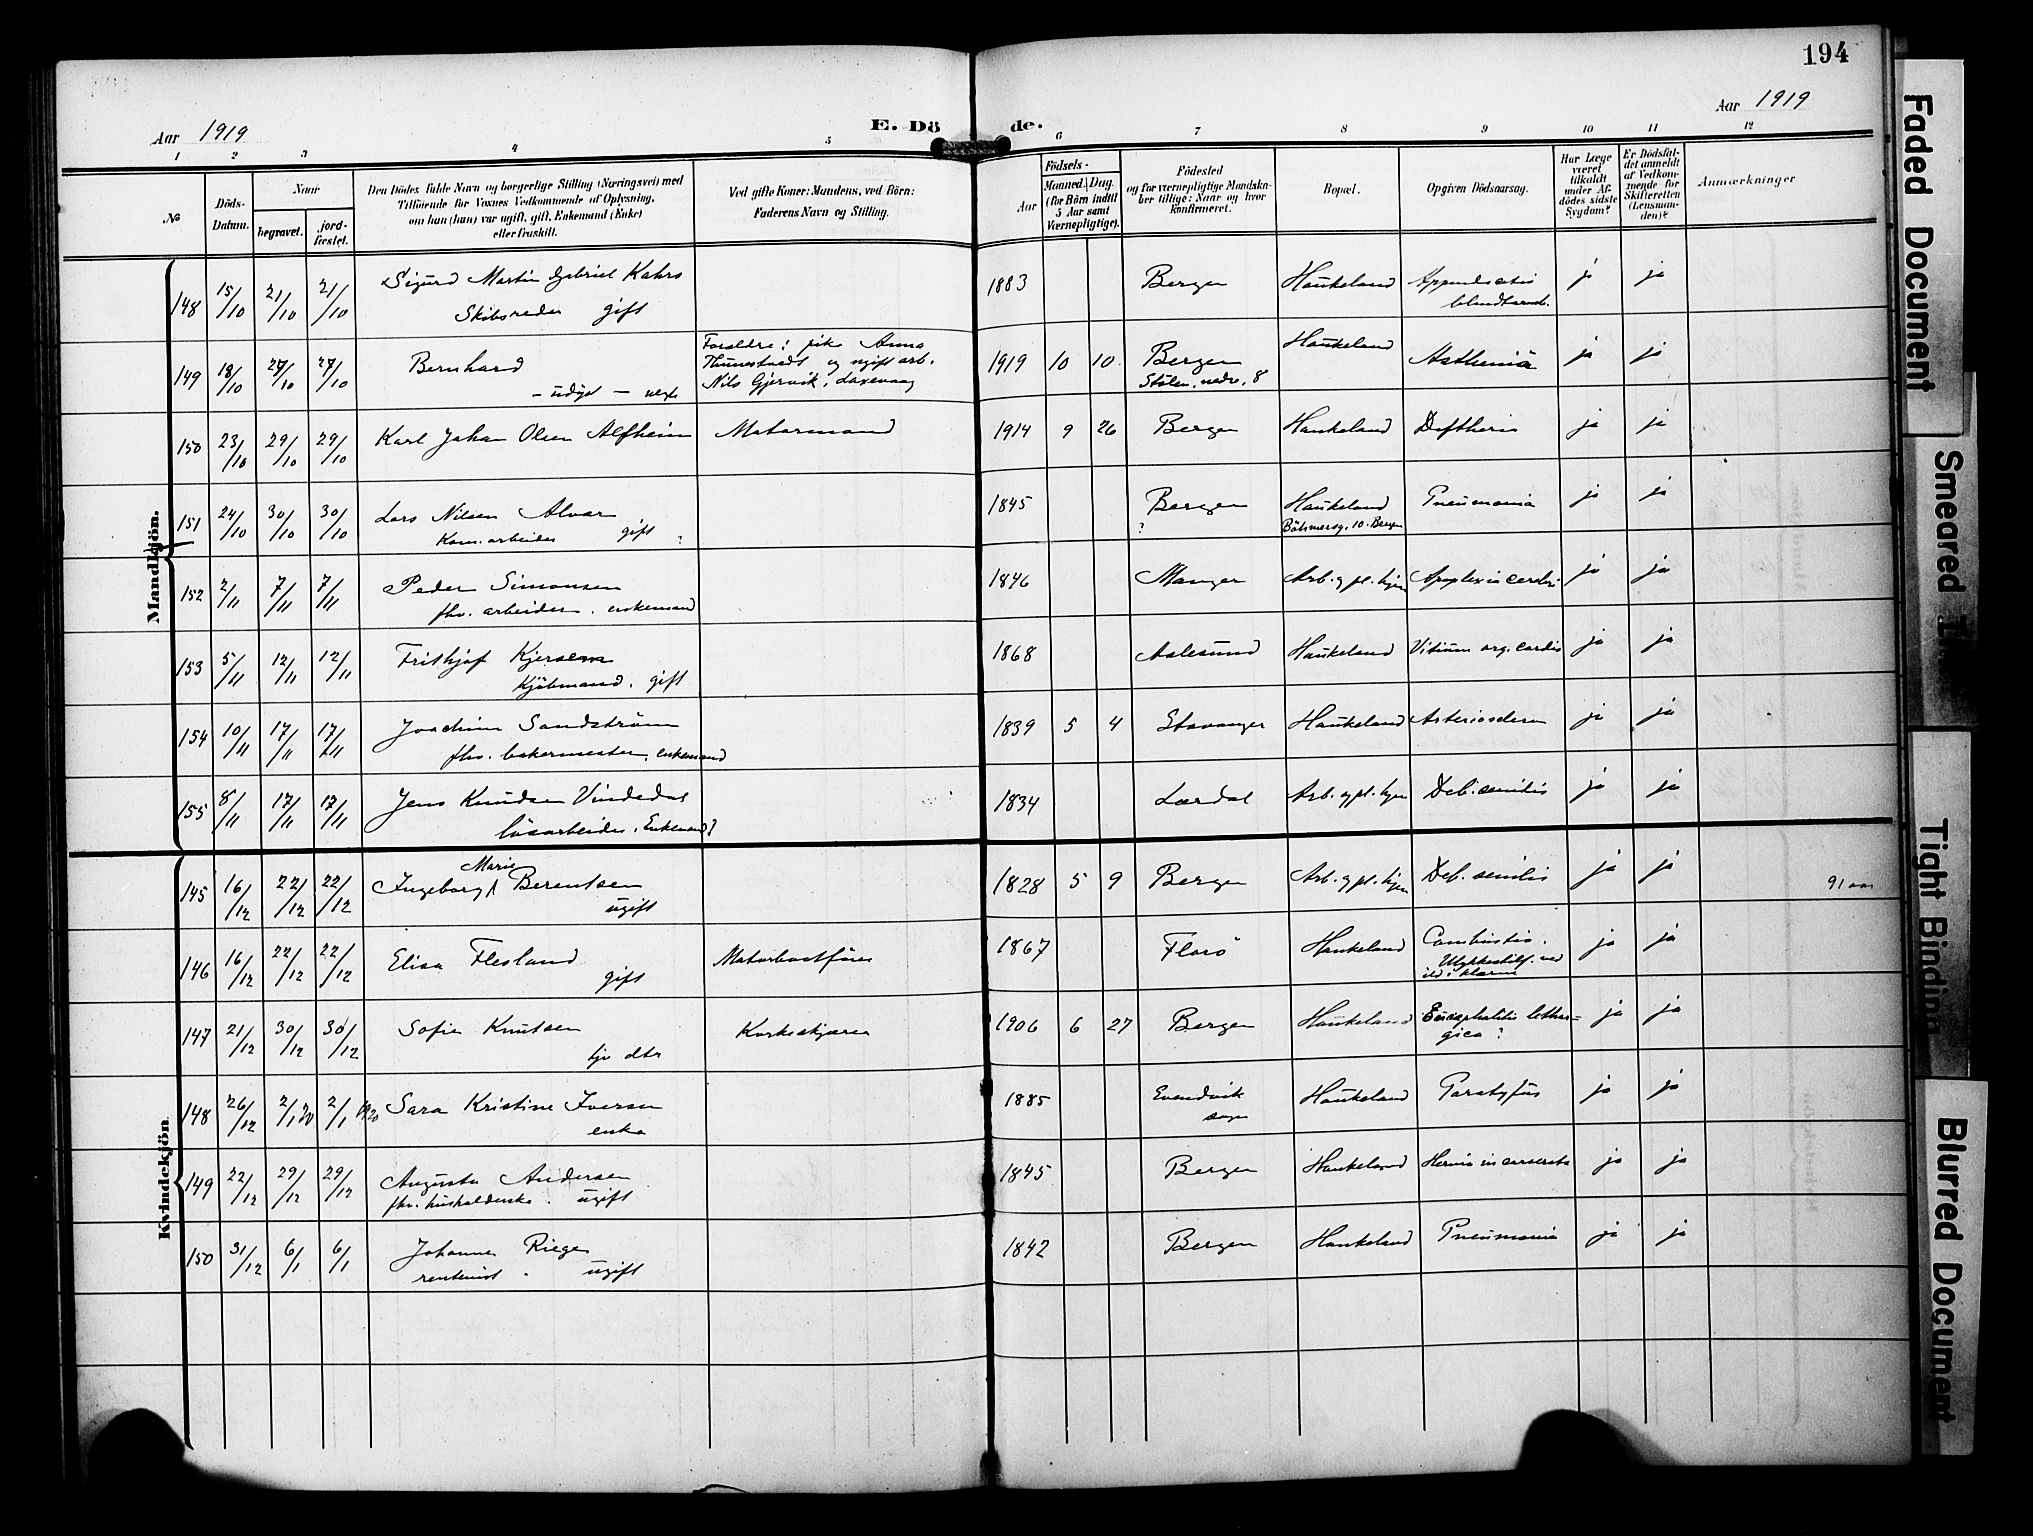 194
Aar 1919
E. Dö de.
Aar 1919
1 2 3 4 5 6 7 8 9 10 11 12
№
Döds-Datum.
Naar
begravet.
jord-fæstet.
Den Dödes fulde Navn og borgerlige Stilling (Næringsvei) med
Tilföiende for Voxnes Vedkommende af Oplysning,
om han (hun) var ugift, gift, Enkemand (Enke)
eller fraskilt.
Ved gifte Koner: Mandens, ved Börn:
Faderens Navn og Stilling.
Födsels-
Aar
Maaned. Dag.
(for Börn indtil
5 Aar samt
Værnepligtige).
Födested
og for værnepligtige Mandska-
ber tillige: Naar og hvor
konfirmeret.
Bopæl.
Opgiven Dödsaarsag.
Har Læge
været
tilkaldt
under Af-
dödes sidste
Sygdom?
Er Dödsfal-
det anmeldt
af Vedkom-
mende for
Skifteretten
(Lensman-
den)?
Anmærkninger
Mandkjön.
148 15/10 21/10 21/10 Sigurd Martin Gabriel Kahrs 1883 Bergen Haukeland Appendicitis ja ja
Skibsreder gift blindtarmb.
149 18/10 27/10 27/10 Bernhard Foraldre: pike Anna 1919 10 10 Bergen Haukeland Asthenia ja ja
- udøpt - ugift arb.
Nils Gjervik, Laxevaag Stölen, nedr. 8
150 23/10 29/10 29/10 Karl Johan Olsen Alfheim Motormand 1914 9 26 Bergen Haukeland Diftheri ja ja
151 24/10 30/10 30/10 Lars Nilsen Alvær 1845 Bergen Haukeland Pneumonia ja ja
Kom. arbeider gift ? ? Böhmersg. 10. Bergen
152 2/11 7/11 7/11 Peder Simonsen 1846 Manger Arb. og pl. hjem Apoplexia cerebri ja ja
fhv. arbeider. enkemand
153 5/11 12/11 12/11 Frithjof Kjersem 1868 Aalesund Haukeland Vitium org. cordis ja ja
Kjöbmand. gift
154 10/11 17/11 17/11 Joachim Sandström 1839 5 4 Stavanger Haukeland Arteriosclero ja ja
fhv. bakermester, enkemand
155 8/11 17/11 17/11 Jens Knudsen Vindedal 1834 Lærdal Arb. og pl. hjem Deb. senilis ja ja
lösarbeider, Enkemand?
Kvindekjön.
145 16/12 22/12 22/12 Ingeborg Marie Berentsen 1828 5 9 Bergen Arb. og pl. hjem Deb. senilis ja ja 91 aar
ugift
146 16/12 22/12 22/12 Elisa Flesland Motorbaatförer 1867 Florö Haukeland Combustio. ja ja
gift Ulykkestilf. ved
ild i klærne
147 21/12 30/12 30/12 Sofie Knutsen Korkskjærer 1906 6 27 Bergen Haukeland Encephalitis lethar= ja ja
hjv dtr gica?
148 26/12 2/1 20 2/1 1920 Sara Kristine Iversen 1885 Evendvik Haukeland Paratyfus ja ja
enke sogn
149 22/12 29/12 29/12 Augusta Andersen 1845 Bergen Haukeland Hernia incarserata ja ja
fhv. husholderske. ugift
150 31/12 6/1 6/1 Johanne Rieger 1842 Bergen Haukeland Pneumonia ja ja
rentenist. ugift
Faded Document
Smeared
Tight Binding
Blurred Document